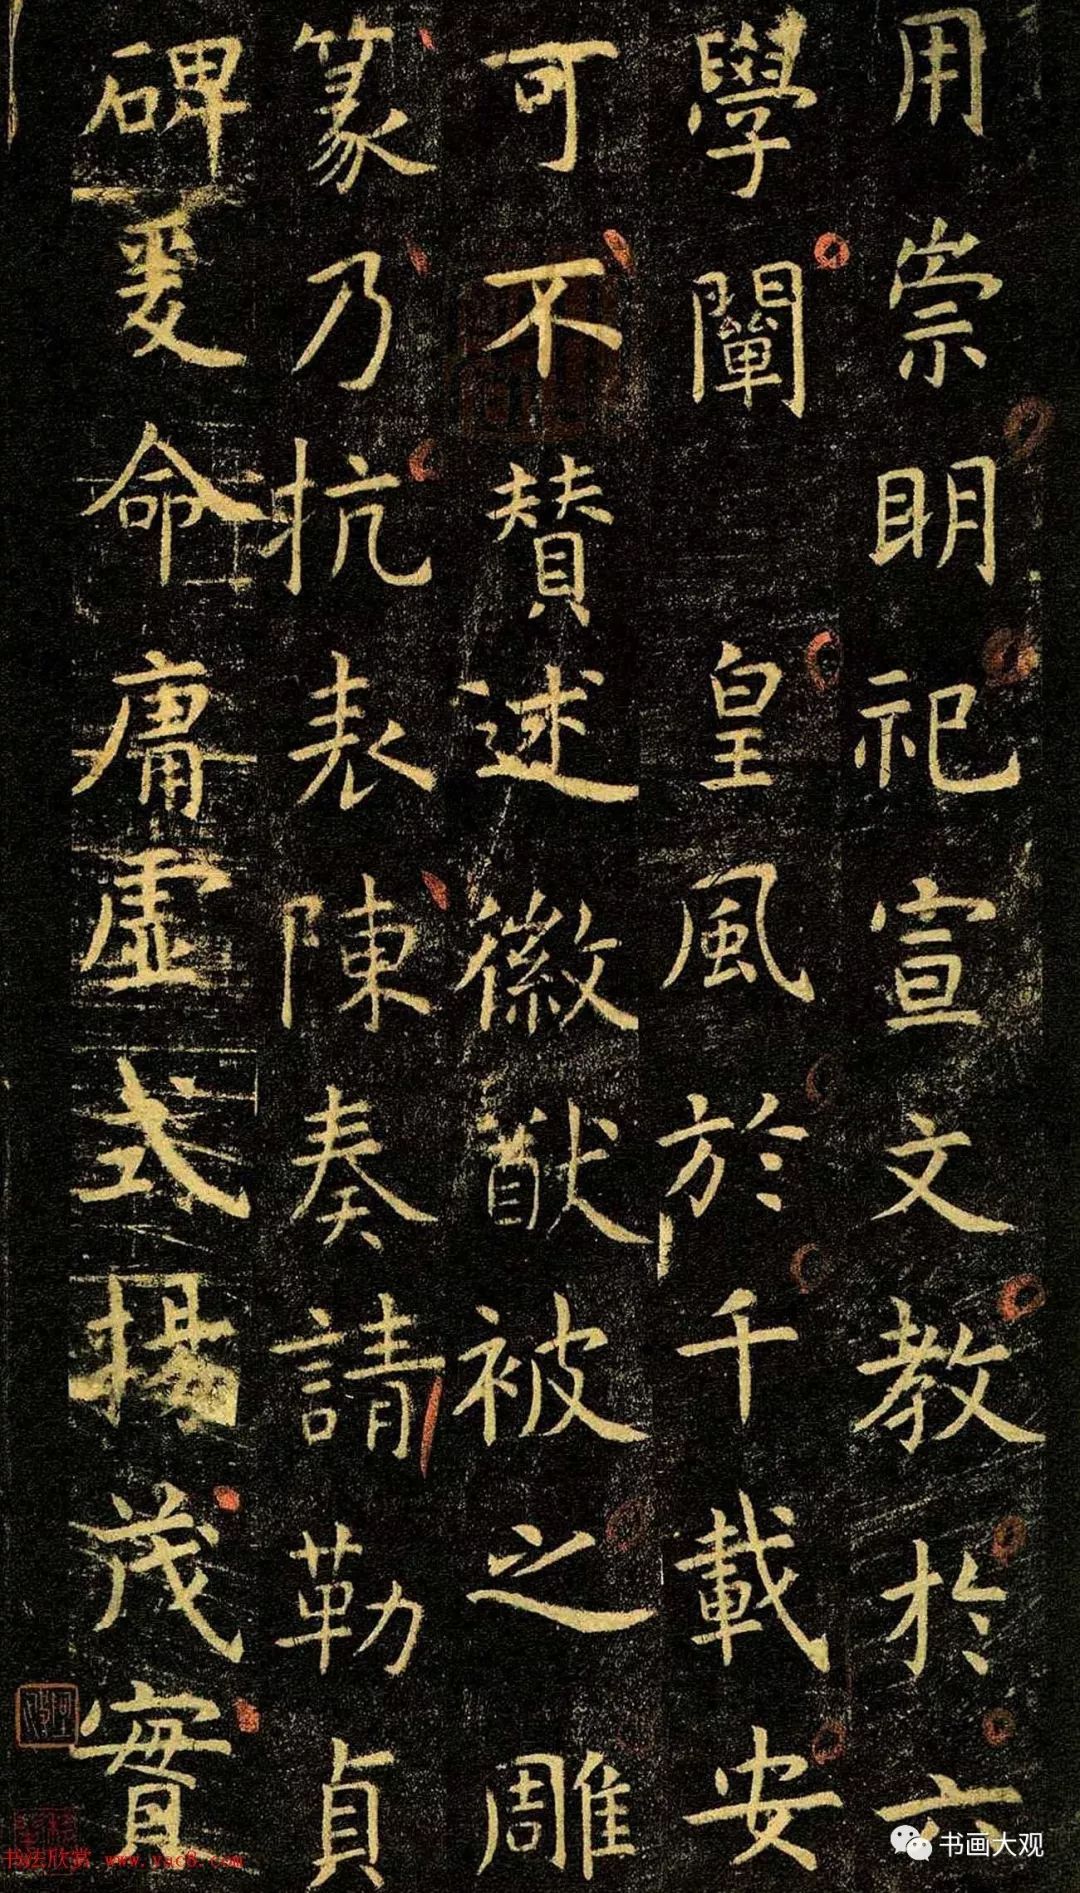 用崇明祀宣文教於六
學闡皇風於千載安
可不贊述徽猷被之雕
篆乃抗表陳奏請勒貞
碑爰命庸虛式揚茂實
书法欣赏 www.yac8.com
书画大观